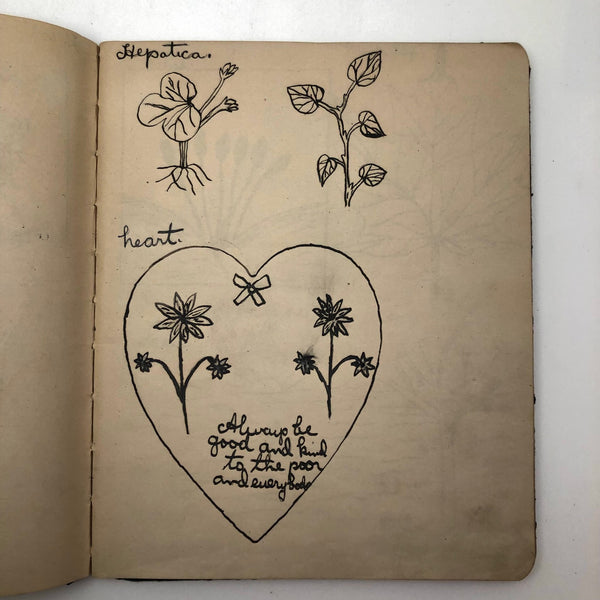 Hepatica.
heart.
Always be
good and kind
to the poor
and everybody